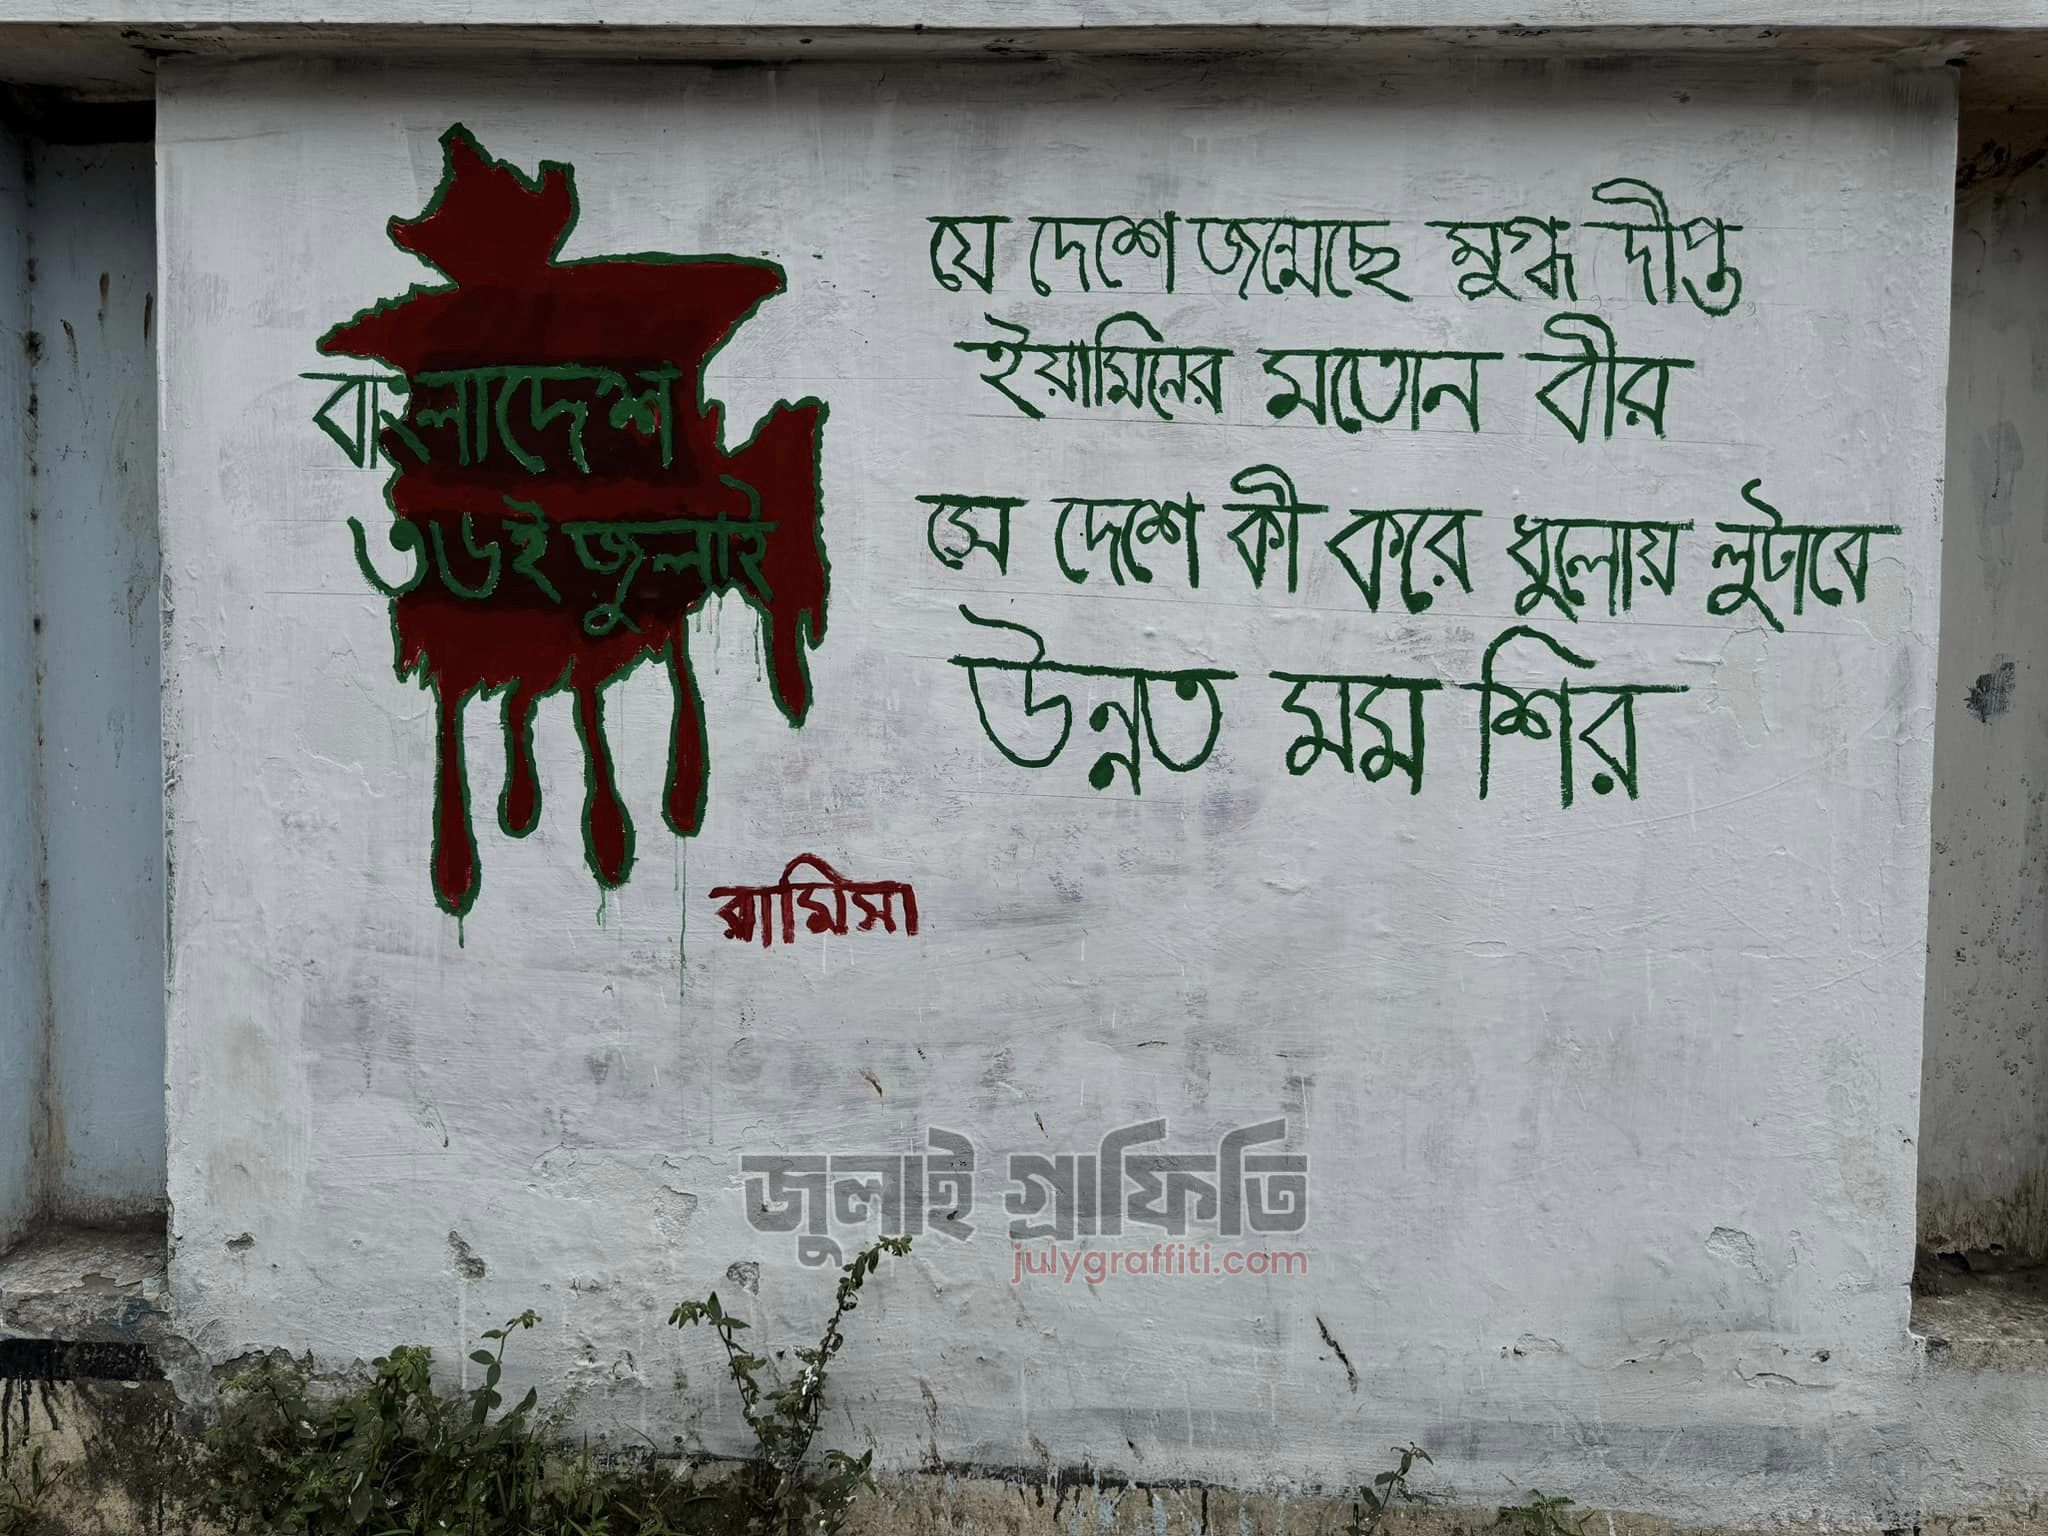 বাংলাদেশ
৩৬ই জুলাই
যে দেশে জন্মেছে মুগ্ধ দীপ্ত
ইয়ামিনের মতোন বীর
সে দেশে কী করে ধুলোয় লুটাবে
উন্নত মম শির
রামিসা
জুলাই গ্রাফিতি
julygraffiti.com